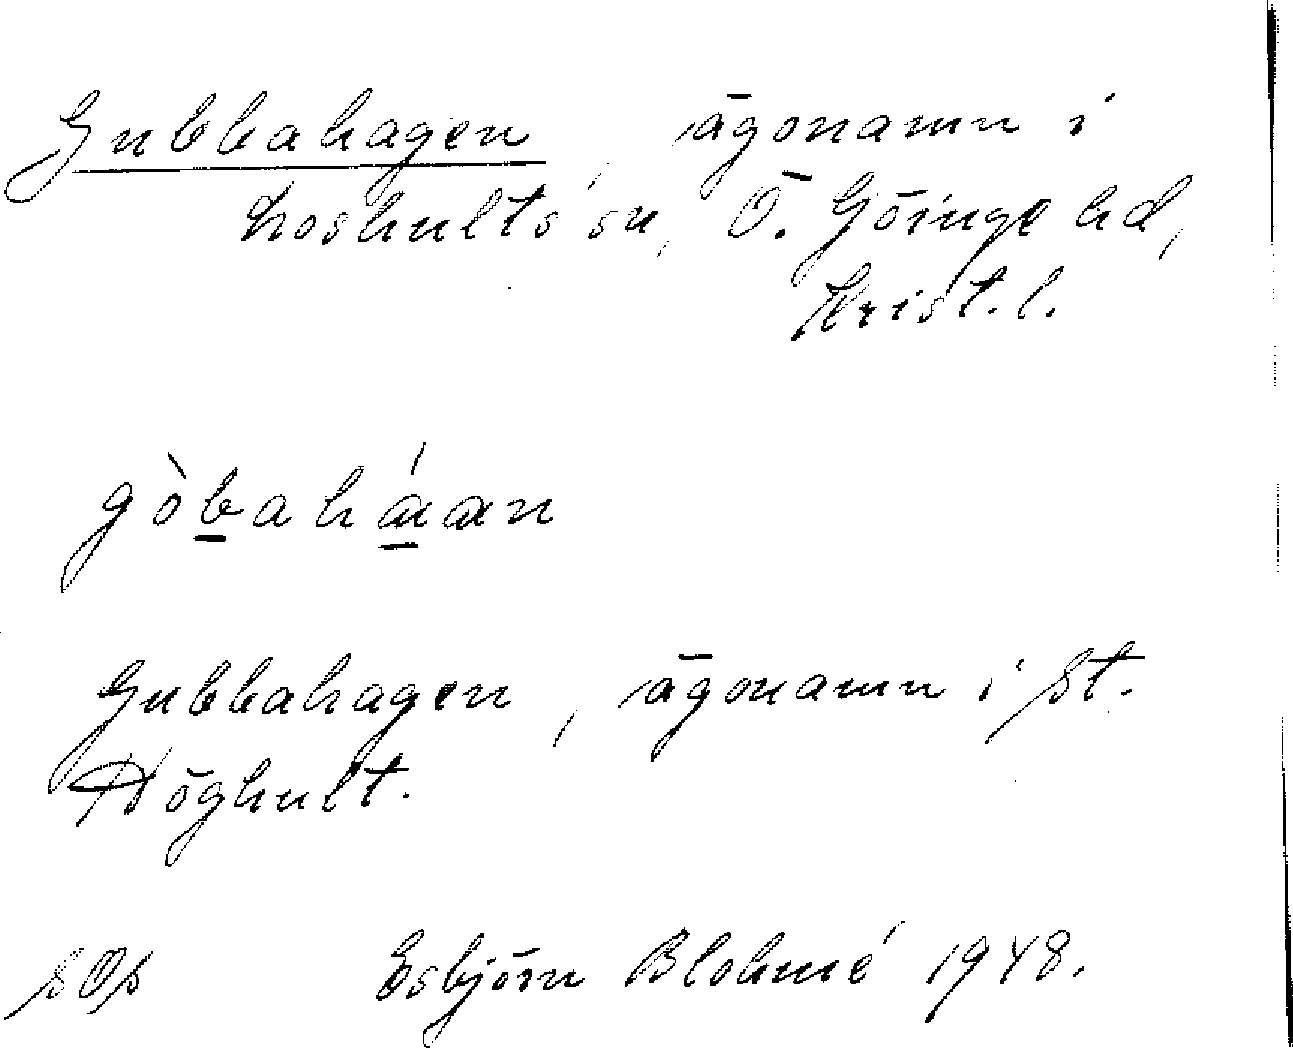 Gubbahagen, ägonamn i
Loshults sn, Ö. Göinge hd,
Krist. l.
gòbahá̱an
Gubbahagen, ägonamn i St.
Höghult.
Esbjörn Blohmé 1948.